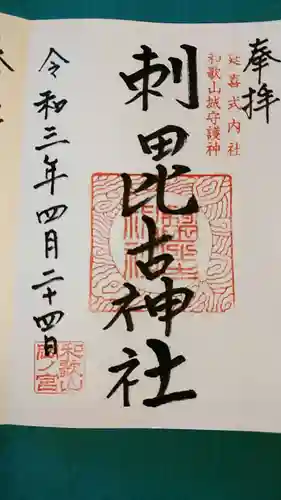 奉拝
延喜式内社
和歌山城守護神
刺田毘古神社
令和三年四月二十四日
和歌山
岡ノ宮